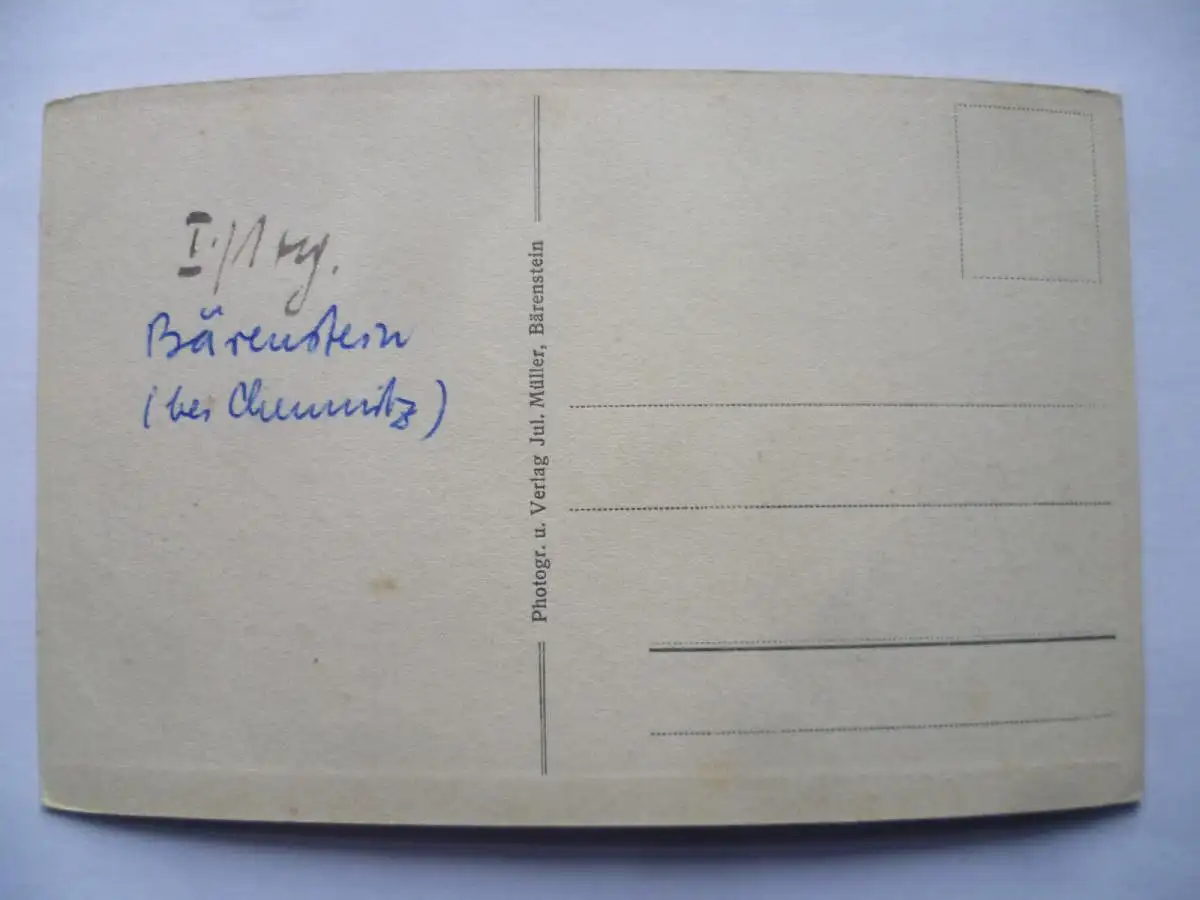 Bärenstein
(bei Chemnitz)
Photogr. u. Verlag Jul. Müller, Bärenstein